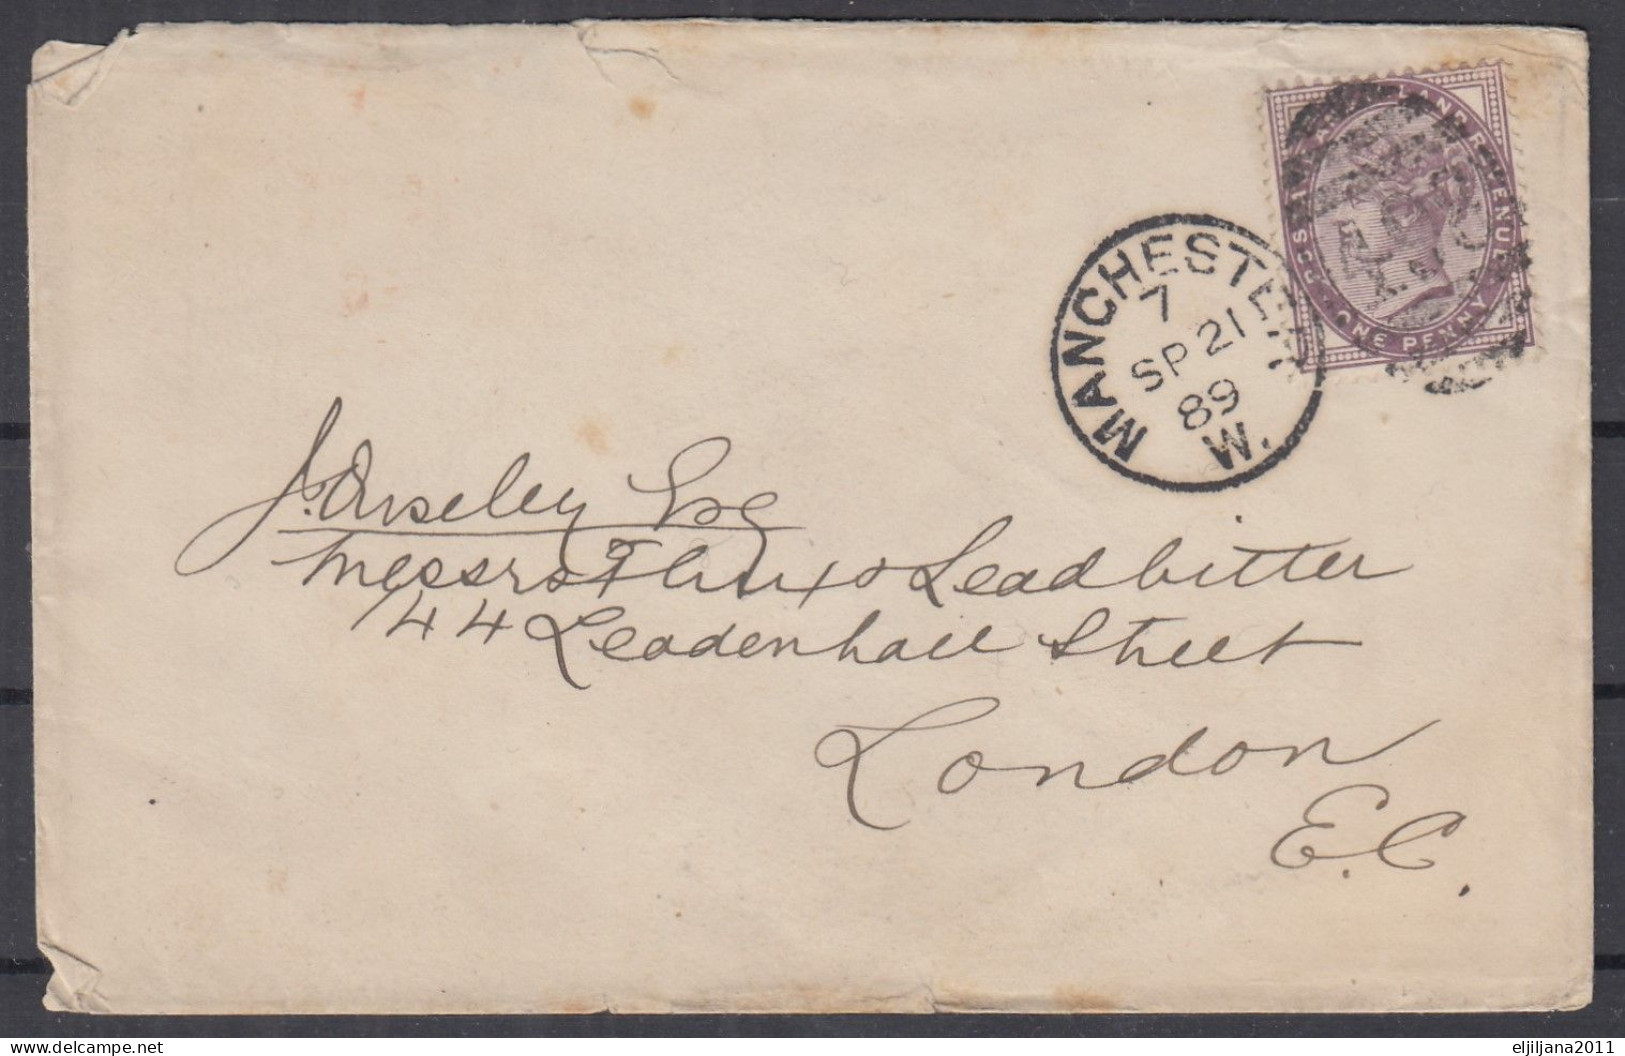 POSTAGE AND INLAND REVENUE
ONE PENNY
MANCHESTER
7
SP 21
89
W.
J. Anseley Esq
Messrs Flux & Leadbitter
144 Leadenhall Street
London
E.C.
delcampe.net
eljiljana2011